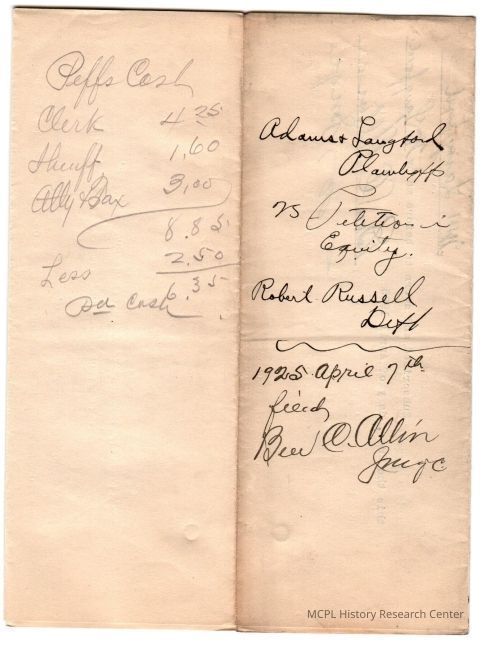 Peffs Cost
Clerk 4 25
Sheriff 1,60
Atty & Tax 3,00
8.85
Less 2.50
Pd Cash 6.35
Adams & Langford
Plaintiff
vs Petition in
Equity.
Robert Russell
Deft
1925 April 7th
filed
Ben D. Allin
Jmcqc
MCPL History Research Center